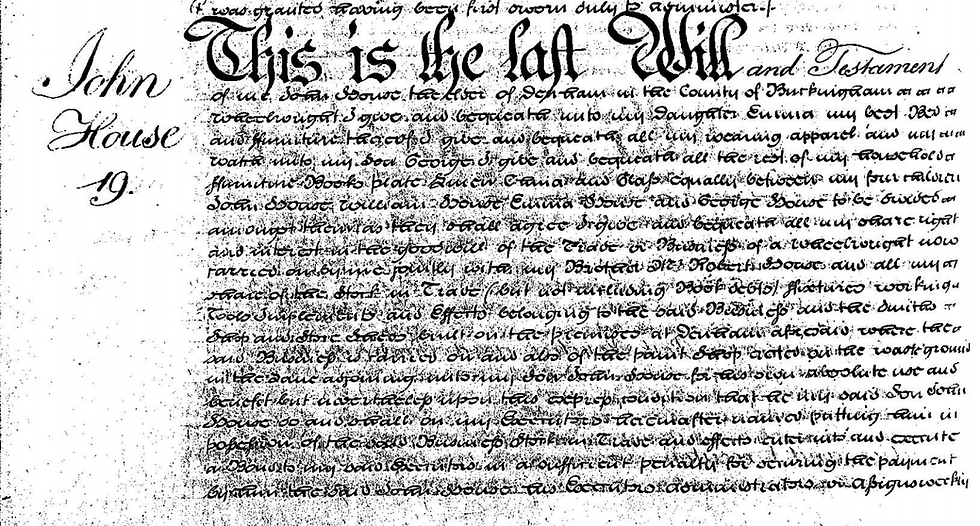 was granted having been first sworn duly to administer.
John
House
19.
This is the last Will and Testament
of me John House the elder of Denham in the County of Buckingham
Wheelwright I give and bequeath unto my Daughter Emma my best Bed
and ffurniture thereof I give and bequeath all my wearing apparel and my
watch unto my Son George I give and bequeath all the rest of my household
ffurniture Books plate Linen China and Glass equally between my four children
John House William House Emma House and George House to be divided
amongst them as they shall agree I give and bequeath all my share right
and interest in the goodwill of the Trade or Business of a wheelwright now
carried on by me jointly with my Brother Robert House and all my
share of the Stock in Trade (but not including Book debts) ffixtures working
Tools Implements and Effects belonging to the said Business and the Smiths
Shop and Store Sheds built on the premises at Denham aforesaid where the
said Business is carried on and also of the paint Shop erected on the waste ground
in the Lane adjoining unto my Son John House for his own absolute use and
benefit but nevertheless upon this express condition that he my said Son John
House do and shall on my Executors hereinafter named putting him in
possession of the said Business Stock in Trade and effects enter into and execute
a Bond to my said Executors in a sufficient penalty for securing the payment
by him the said John House his Executors Administrators or Assigns weekly